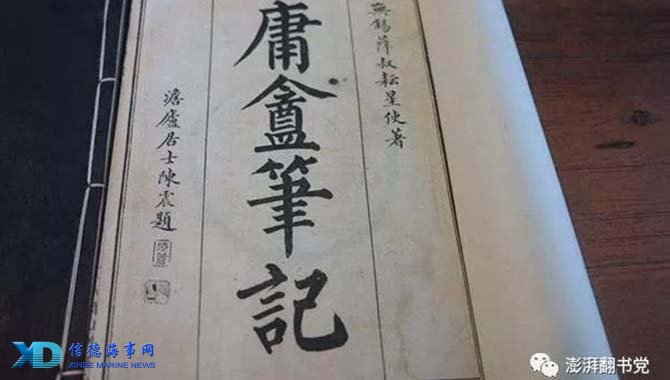 無錫薛叔耘星使著
庸盦筆記
澹廬居士陳震題
XD 信德海事网
XINDE MARINE NEWS
澎湃翻书党